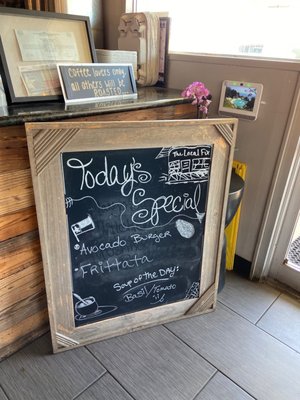 Coffee lovers only
all others will be
ROASTED
The Local Fix
Today's
Special
Avocado Burger
Frittata
Soup of the Day:
Basil/Tomato